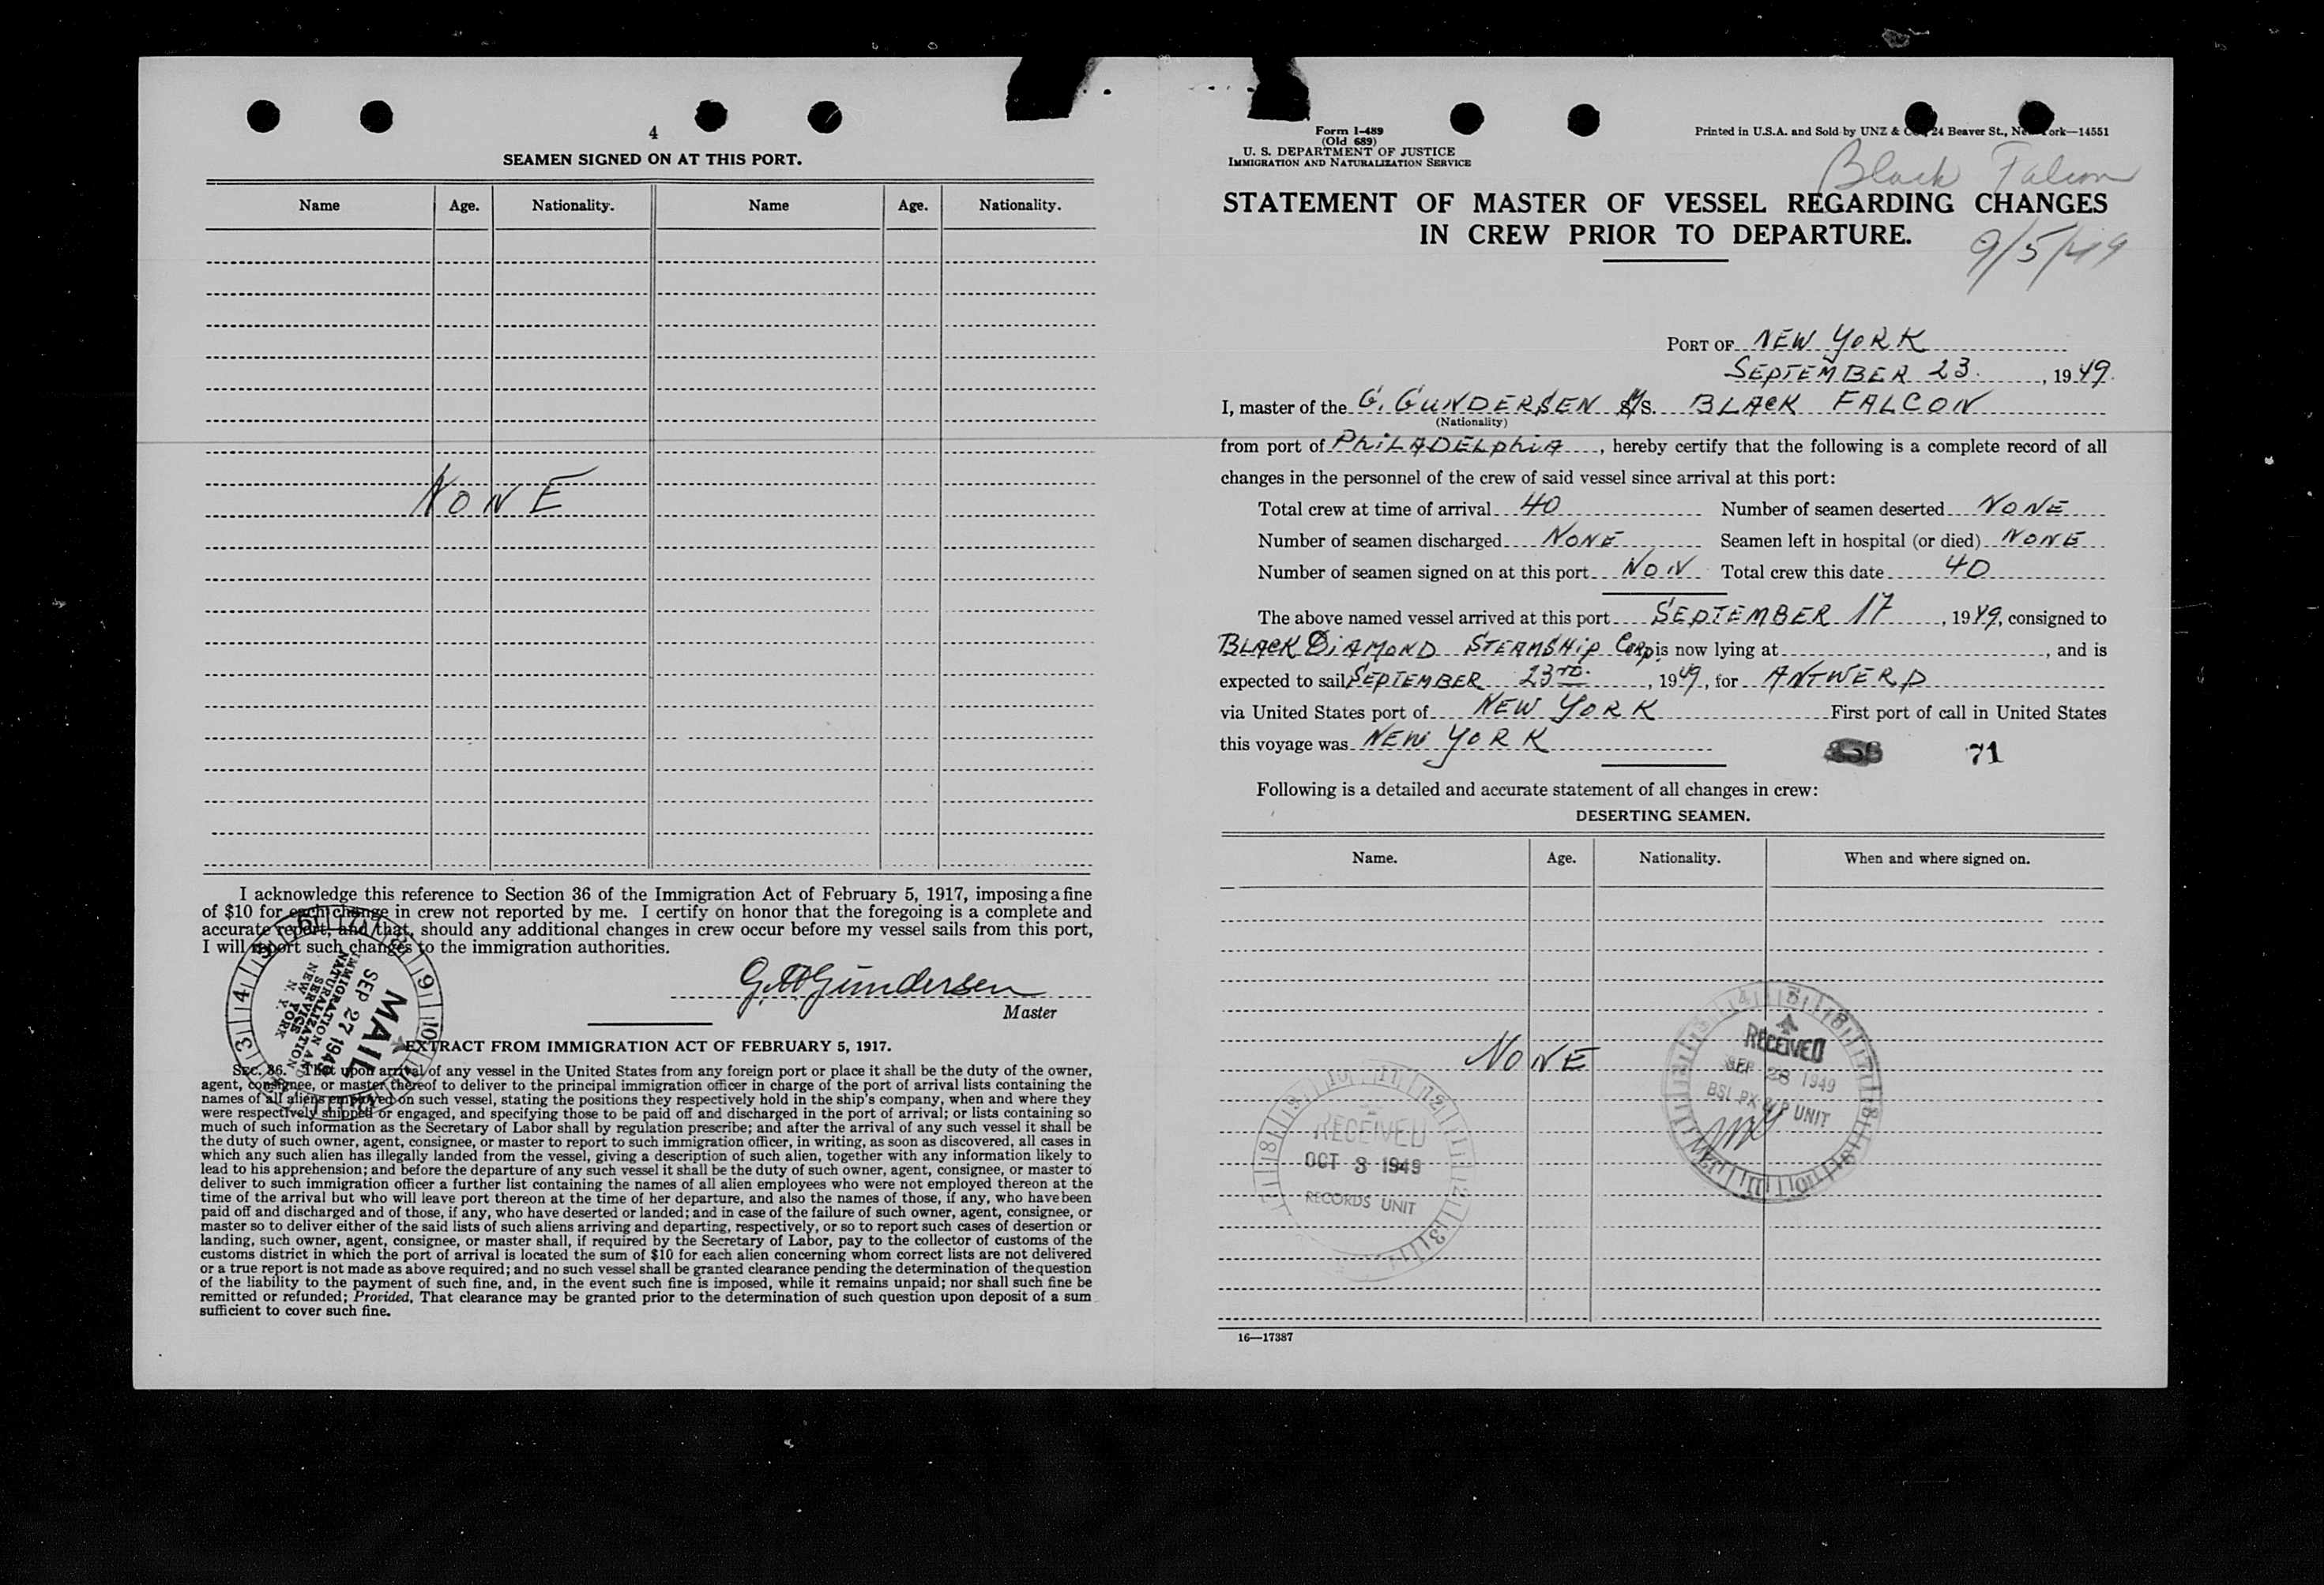 4
SEAMEN SIGNED ON AT THIS PORT.
Name Age. Nationality. Name Age. Nationality.
NONE
I acknowledge this reference to Section 36 of the Immigration Act of February 5, 1917, imposing a fine
of $10 for each change in crew not reported by me. I certify on honor that the foregoing is a complete and
accurate report, and that, should any additional changes in crew occur before my vessel sails from this port,
I will report such changes to the immigration authorities.
G. Gundersen
Master
MAIL
SEP 27 1949
IMMIGRATION AND
NATURALIZATION
SERVICE
NEW YORK
N. Y.
EXTRACT FROM IMMIGRATION ACT OF FEBRUARY 5, 1917.
SEC. 36. That upon arrival of any vessel in the United States from any foreign port or place it shall be the duty of the owner,
agent, consignee, or master thereof to deliver to the principal immigration officer in charge of the port of arrival lists containing the
names of all aliens employed on such vessel, stating the positions they respectively hold in the ship's company, when and where they
were respectively shipped or engaged, and specifying those to be paid off and discharged in the port of arrival; or lists containing so
much of such information as the Secretary of Labor shall by regulation prescribe; and after the arrival of any such vessel it shall be
the duty of such owner, agent, consignee, or master to report to such immigration officer, in writing, as soon as discovered, all cases in
which any such alien has illegally landed from the vessel, giving a description of such alien, together with any information likely to
lead to his apprehension; and before the departure of any such vessel it shall be the duty of such owner, agent, consignee, or master to
deliver to such immigration officer a further list containing the names of all alien employees who were not employed thereon at the
time of the arrival but who will leave port thereon at the time of her departure, and also the names of those, if any, who have been
paid off and discharged and of those, if any, who have deserted or landed; and in case of the failure of such owner, agent, consignee, or
master so to deliver either of the said lists of such aliens arriving and departing, respectively, or so to report such cases of desertion or
landing, such owner, agent, consignee, or master shall, if required by the Secretary of Labor, pay to the collector of customs of the
customs district in which the port of arrival is located the sum of $10 for each alien concerning whom correct lists are not delivered
or a true report is not made as above required; and no such vessel shall be granted clearance pending the determination of the question
of the liability to the payment of such fine, and, in the event such fine is imposed, while it remains unpaid; nor shall such fine be
remitted or refunded; Provided, That clearance may be granted prior to the determination of such question upon deposit of a sum
sufficient to cover such fine.
Form I-489
(Old 689)
U. S. DEPARTMENT OF JUSTICE
IMMIGRATION AND NATURALIZATION SERVICE
Printed in U.S.A. and Sold by UNZ & 24 Beaver St., New York—14551
Black Falcon
STATEMENT OF MASTER OF VESSEL REGARDING CHANGES
IN CREW PRIOR TO DEPARTURE.
9/5/49
PORT OF NEW YORK
SEPTEMBER 23. , 1949.
I, master of the G. GUNDERSEN M/S. BLACK FALCON
(Nationality)
from port of PHILADELPHIA , hereby certify that the following is a complete record of all
changes in the personnel of the crew of said vessel since arrival at this port:
Total crew at time of arrival 40 Number of seamen deserted NONE
Number of seamen discharged NONE Seamen left in hospital (or died) NONE
Number of seamen signed on at this port NON Total crew this date 40
The above named vessel arrived at this port SEPTEMBER 17 , 1949, consigned to
BLACK DIAMOND STEAMSHIP CORP is now lying at , and is
expected to sail SEPTEMBER 23RD. , 1949, for ANTWERP
via United States port of NEW YORK First port of call in United States
this voyage was NEW YORK
71
Following is a detailed and accurate statement of all changes in crew:
DESERTING SEAMEN.
Name. Age. Nationality. When and where signed on.
NONE
RECEIVED
SEP 28 1949
UNIT
RECEIVED
OCT 3 1949
RECORDS UNIT
16—17387